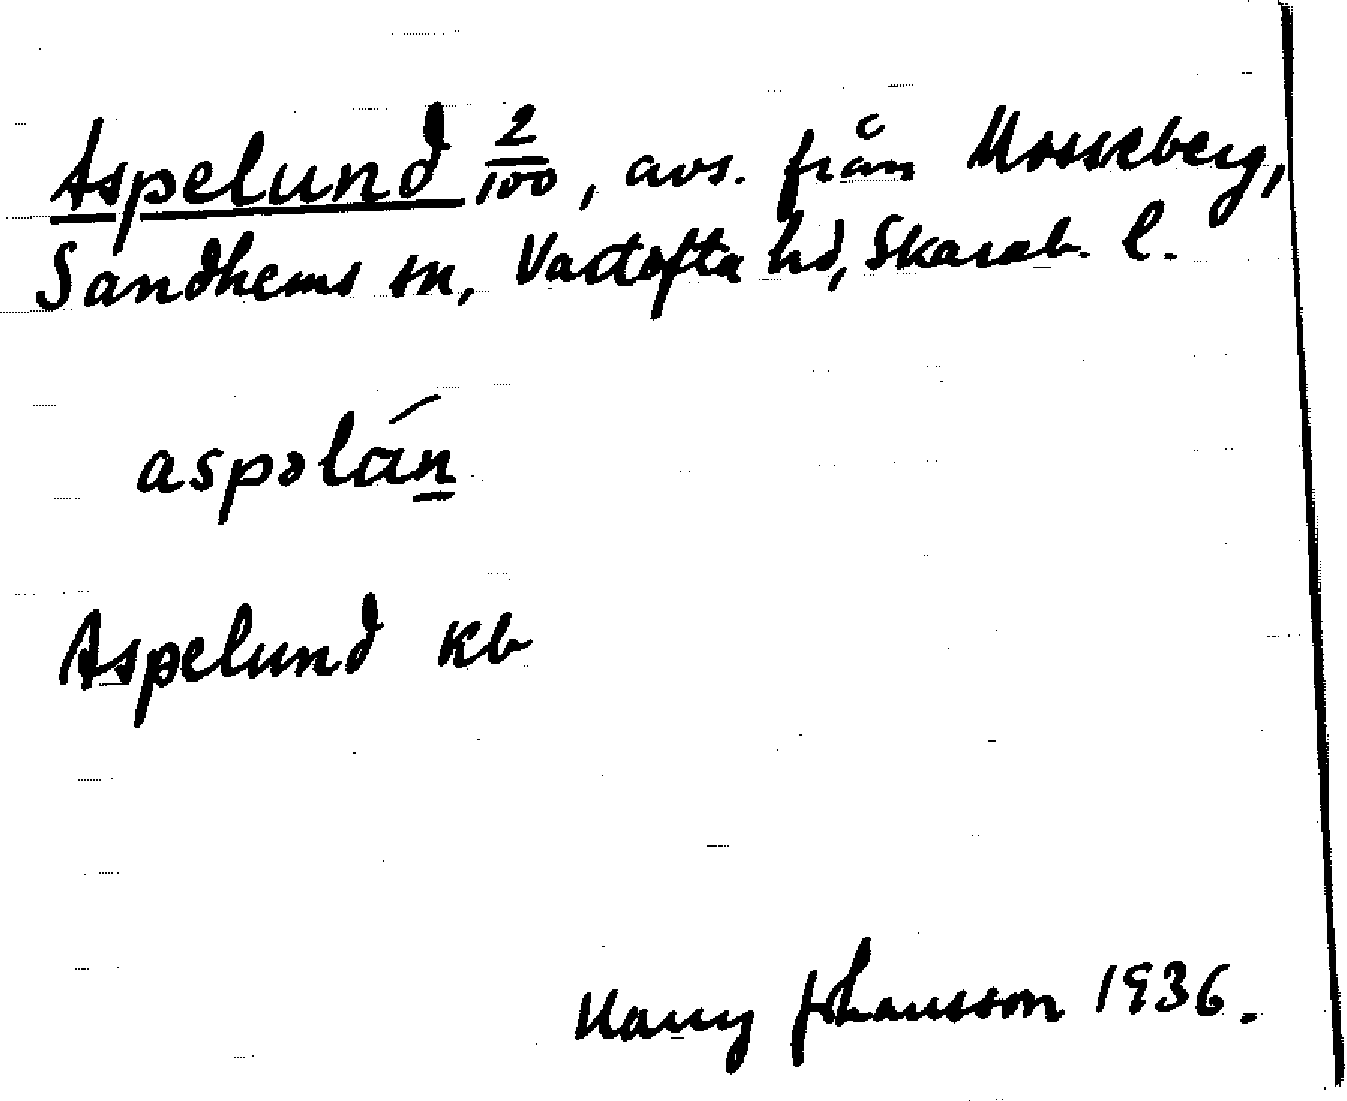 Aspelund 2/100, avs. från Mosseberg,
Sandhems sn, Vartofta hd, Skarab. l.
aspəlán̲
Aspelund kb
Harry Johansson 1936.